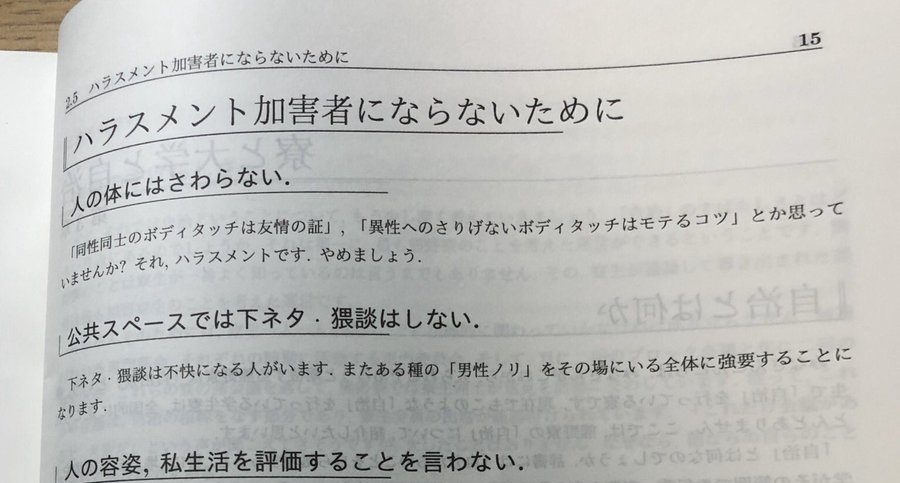 2.5 ハラスメント加害者にならないために
15
ハラスメント加害者にならないために
人の体にはさわらない.
「同性同士のボディタッチは友情の証」, 「異性へのさりげないボディタッチはモテるコツ」とか思って
いませんか? それ, ハラスメントです. やめましょう.
公共スペースでは下ネタ・猥談はしない.
下ネタ・猥談は不快になる人がいます. またある種の「男性ノリ」をその場にいる全体に強要することに
なります.
人の容姿, 私生活を評価することを言わない.